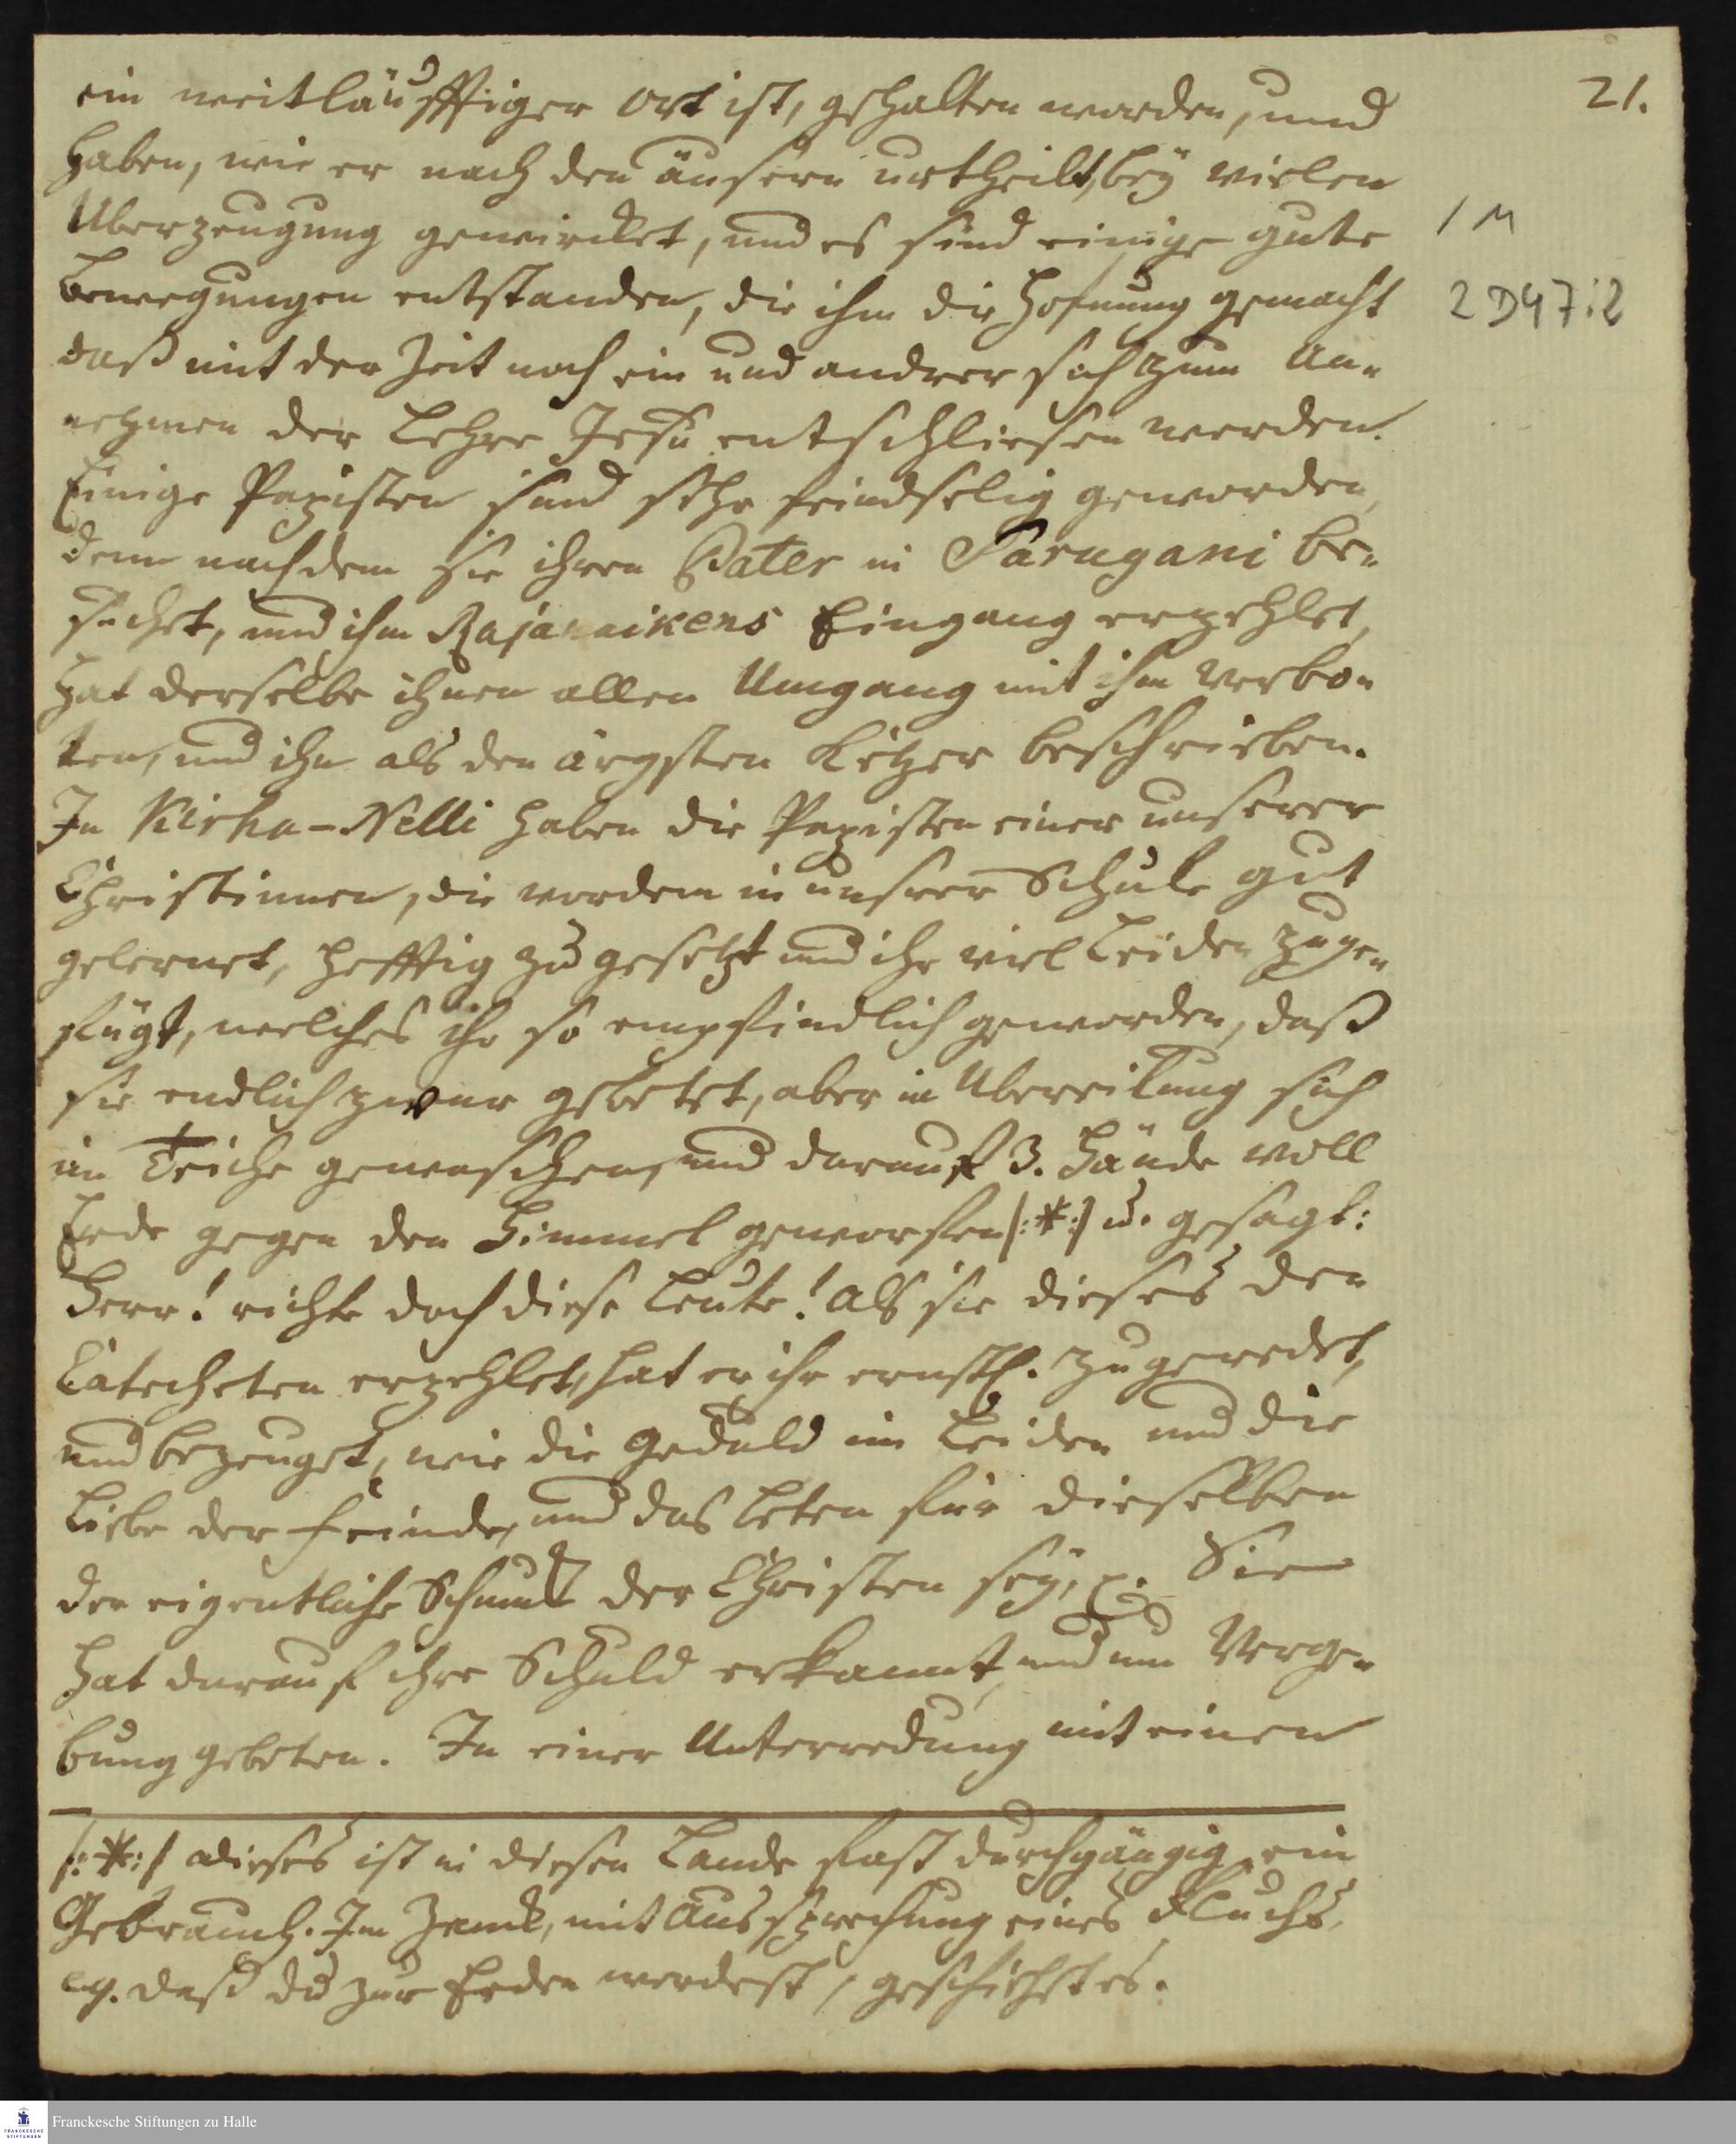 21.
ein weitläuffiger Ort ist, gehalten worden, und
haben, wie er nach den äusern urtheilt, bey vielen
Uberzeugung gewircket, und es sind einige gute
Bewegungen entstanden, die ihm die Hofnung gemacht
daß mit der Zeit noch ein und andrer sich zum An-
nehmen der Lehre Jesu entschliesen werden.
Einige Papisten sind sehr feindselig geworden,
denn nachdem sie ihren Pater in Sarugani be-
suchet, und ihm Rajanaikens Eingang erzehlet,
hat derselbe ihnen allen Umgang mit ihm verbo-
ten, und ihn als den ärgsten Ketzer beschrieben.
In Kirha-Nelli haben die Papisten einer unserer
Christinnen, die vordem in unsrer Schule gut
gelernet, hefftig zu gesetzt und ihr viel Leiden zuge-
fügt, welches ihr so empfindlich geworden, daß
sie endlich zwar gebetet, aber in Ubereilung sich
im Teiche gewaschen, und darauf 3. Hände voll
Erde gegen den Himmel geworfen /:*:/ u. gesagt:
Herr! richte doch diese Leute! Als sie dieses den
Catecheten erzehlet, hat er ihr ernstl. zugeredet,
und bezeuget, wie die Geduld im Leiden und die
Liebe der Feinde, und das beten für dieselben
der eigentliche Schmuck der Christen sey, p. Sie
hat darauf ihre Schuld erkannt, und um Verge-
bung gebeten. In einer Unterredung mit einen
/:*:/ dieses ist in diesen Lande fast durchgängig ein
Gebrauch. Im Zanck, mit Aussprechung eines Fluchs,
e.g. daß du zur Erden werdest, geschichet es.
1 M
2 D47:2
Franckesche Stiftungen zu Halle
FRANCKESCHE
STIFTUNGEN